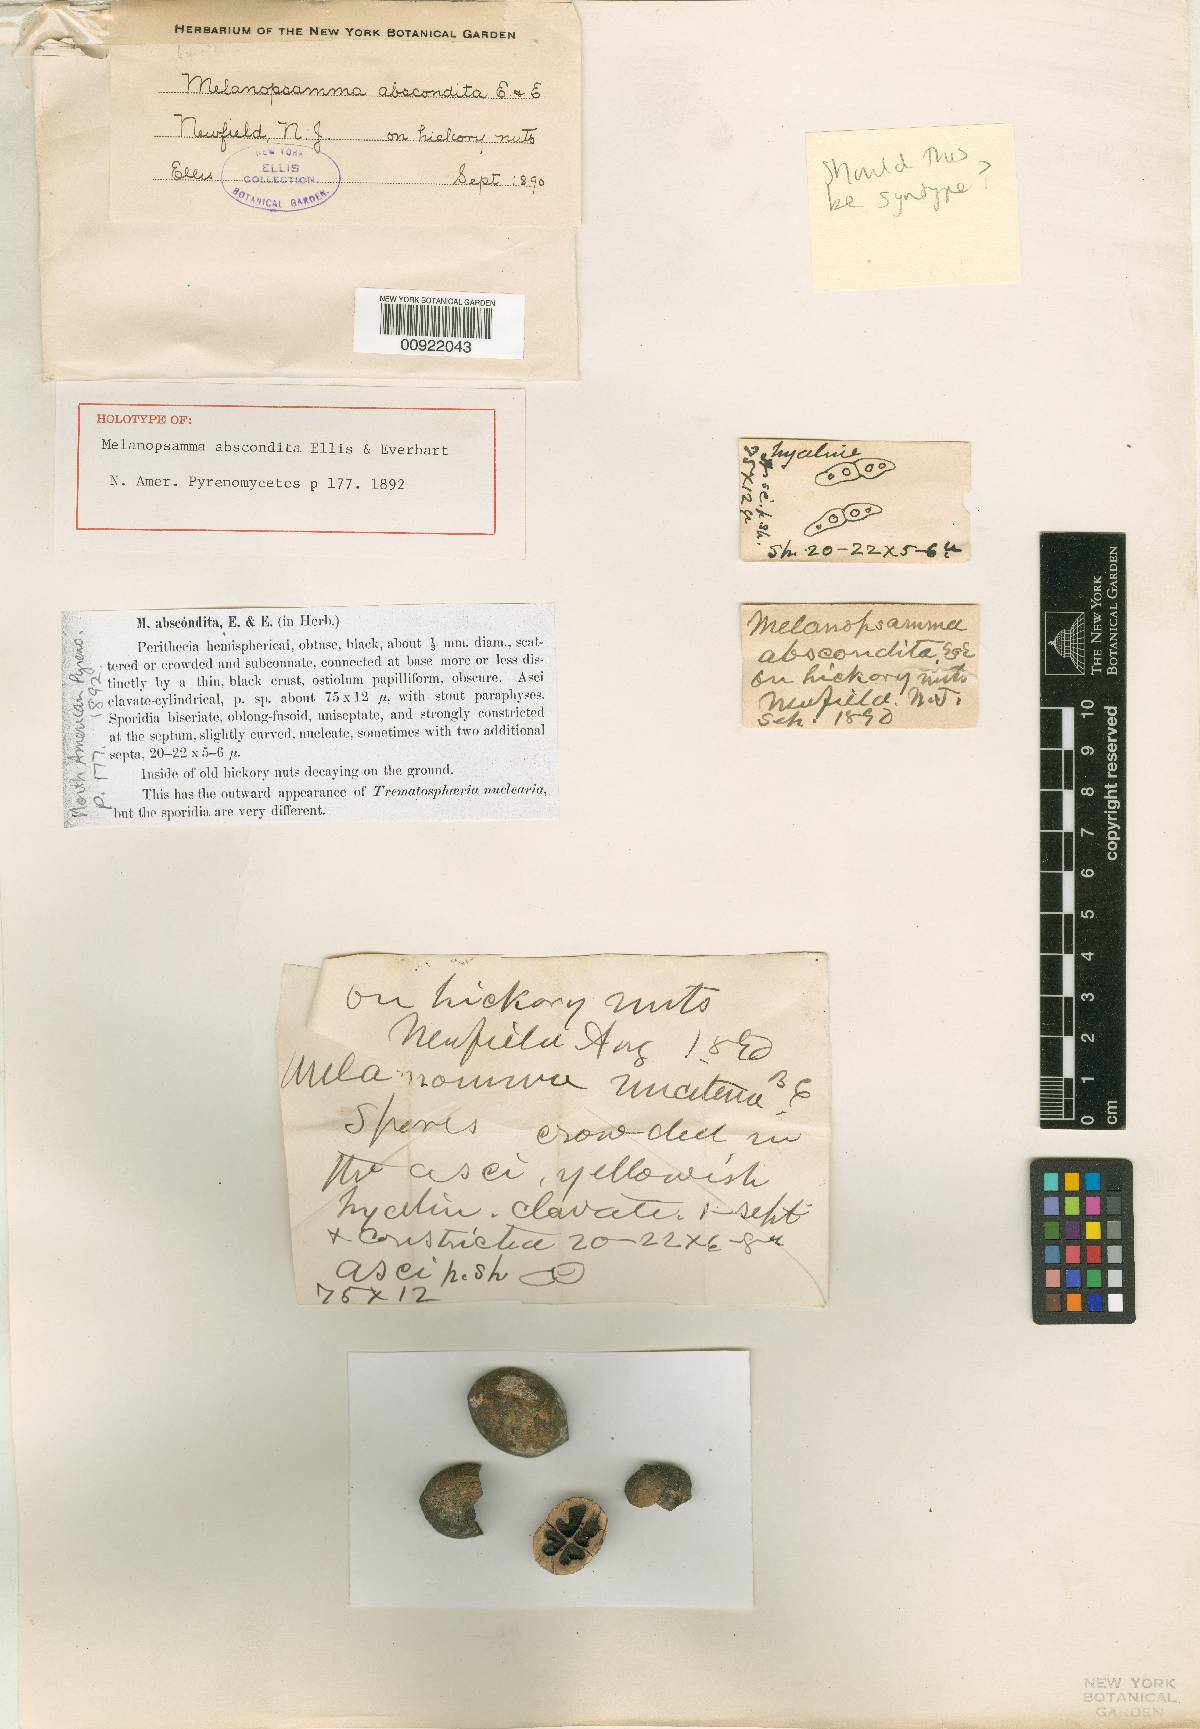 HERBARIUM OF THE NEW YORK BOTANICAL GARDEN
Melanopsamma abscondita E & E
Newfield, N. J. on hickory nuts
Ellis Sept 1890
NEW YORK
ELLIS
COLLECTION.
BOTANICAL GARDEN.
NEW YORK BOTANICAL GARDEN
00922043
Should this
be syntype?
HOLOTYPE OF:
Melanopsamma abscondita Ellis & Everhart
N. Amer. Pyrenomycetes p 177. 1892
hyaline
Asci p. sp.
75 x 12 µ
Sp. 20-22 x 5-6 µ
Melanopsamma
abscondita, E & E
on hickory nuts
Newfield. N.J.
Sep. 1890
North American Pyreno.
p. 177. 1892
M. abscóndita, E. & E. (in Herb.)
Perithecia hemispherical, obtuse, black, about ½ mm. diam., scat-
tered or crowded and subconnate, connected at base more or less dis-
tinctly by a thin, black crust, ostiolum papilliform, obscure. Asci
clavate-cylindrical, p. sp. about 75 x 12 µ, with stout paraphyses.
Sporidia biseriate, oblong-fusoid, uniseptate, and strongly constricted
at the septum, slightly curved, nucleate, sometimes with two additional
septa, 20–22 x 5–6 µ.
Inside of old hickory nuts decaying on the ground.
This has the outward appearance of Trematosphæria nuclearia,
but the sporidia are very different.
on hickory nuts
Newfield Aug 1890
Melanomma
Spores crowded in
the asci, yellowish
hyalin. clavate. 1-sept
+ constricted 20-22 x 6-8 µ
asci p. sp
75 x 12
THE NEW YORK
BOTANICAL GARDEN
copyright reserved
10
9
8
7
6
5
4
3
2
1
0
cm
NEW YORK
BOTANICAL
GARDEN